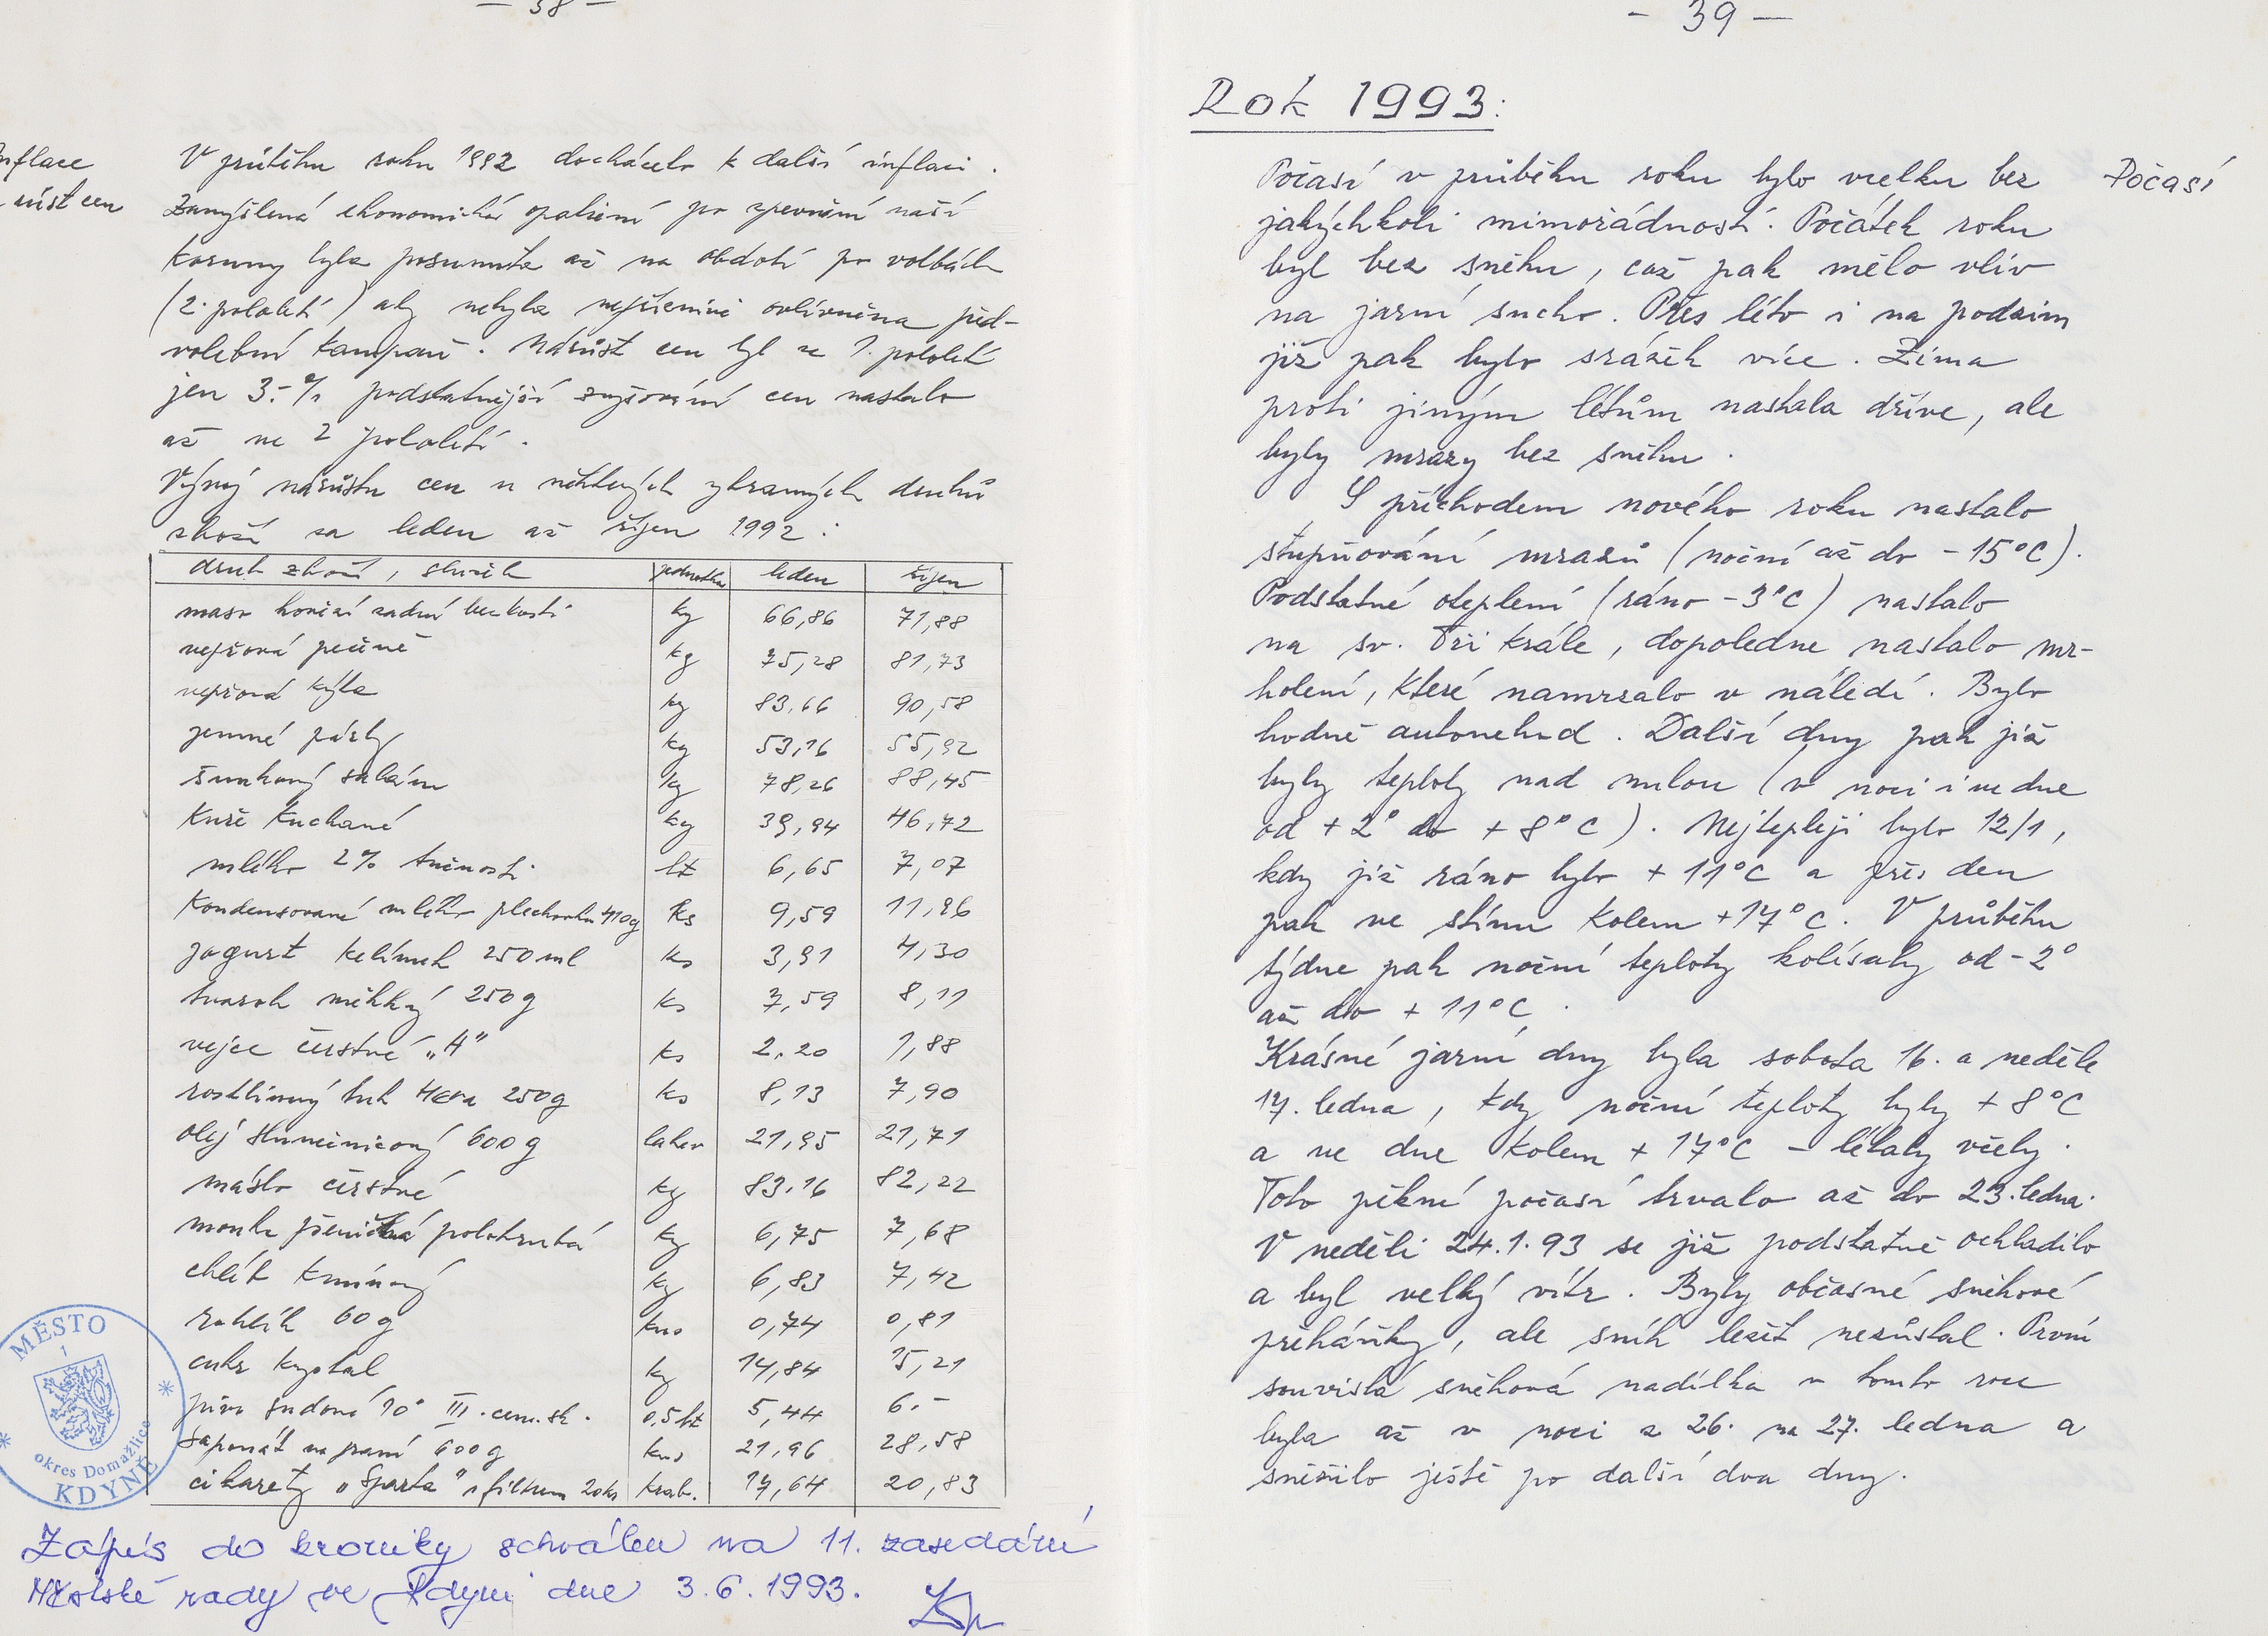 - 38 -
Inflace
růst cen
V průběhu roku 1992 docházelo k další inflaci.
Zamyšlená ekonomická opatření po zpevnění naší
koruny byla posunuta až na období po volbách
(2. pololetí) aby nebyla nepříznivě ovlivněna před-
volební kampaň. Nárůst cen byl za 1. pololetí
jen 3.-% podstatnější zvyšování cen nastalo
až ve 2 pololetí.
Vývoj nárůstu cen u některých vybraných druhů
zboží za leden až říjen 1992:
druh zboží, služeb jednotka leden říjen
maso hovězí zadní bez kosti kg 66,86 71,88
vepřová pečeně kg 75,28 81,73
vepřová kýta kg 83.66 90,58
jemné párky kg 53,16 55,92
šunkový salám kg 78,26 88,45
Kuře Kuchané kg 39,94 46,72
mléko 2% tučnosti lt 6,65 7,07
Kondensované mléko plechovka 410g ks 9,59 11,96
jogurt kelímek 250 ml ks 3,91 4,30
tvaroh měkký 250g ks 7,59 8,11
vejce čerstvé „A" ks 2.20 1,88
rostlinný tuk Hera 250g ks 8,13 7,90
olej slunečnicový 600g lahev 21,95 21,71
máslo čerstvé kg 83.16 82,22
mouka pšeničná polohrubá kg 6,75 7,68
chléb kmínový kg 6,83 7,42
rohlík 60g kus 0,74 0,81
cukr krystal kg 14,84 15,21
pivo sudové 10° III. cen. sk. 0,5 lt 5,44 6.-
saponát na praní 600g kus 21,96 28,58
cikarety „Sparta" s filtrem 20ks krab. 17,64 20,83
MĚSTO
1
okres Domažlice
KDYNĚ
Zápis do kroniky schválen na 11. zasedání
Městské rady ve Kdyni dne 3.6.1993.
- 39 -
Rok 1993:
Počasí
Počasí v průběhu roku bylo vcelku bez
jakýchkoli mimořádností. Počátek roku
byl bez sněhu, což pak mělo vliv
na jarní sucho. Přes léto i na podzim
již pak bylo srážek více. Zima
proti jiným létům nastala dříve, ale
byly mrazy bez sněhu.
S příchodem nového roku nastalo
stupňování mrazů (noční až do -15°C).
Podstatné oteplení (ráno -3°C) nastalo
na sv. Tři krále, dopoledne nastalo mr-
holení, které namrzalo v náledí. Bylo
hodně autonehod. Další dny pak již
byly teploty nad nulou (v noci i ve dne
od +2° do +8°C). Nejtepleji bylo 12/1,
kdy již ráno bylo +11°C a přes den
pak ve stínu kolem +17°C. V průběhu
týdne pak noční teploty kolísaly od -2°
až do +11°C.
Krásné jarní dny byla sobota 16. a neděle
17. ledna, kdy noční teploty byly +8°C
a ve dne kolem +17°C - létaly včely.
Toto pěkné počasí trvalo až do 23. ledna.
V neděli 24.1.93 se již podstatně ochladilo
a byl velký vítr. Byly občasné sněhové
přeháňky, ale sníh ležet nezůstal. První
souvislá sněhová nadílka v tomto roce
byla až v noci z 26. na 27. ledna a
sněžilo ještě po další dva dny.